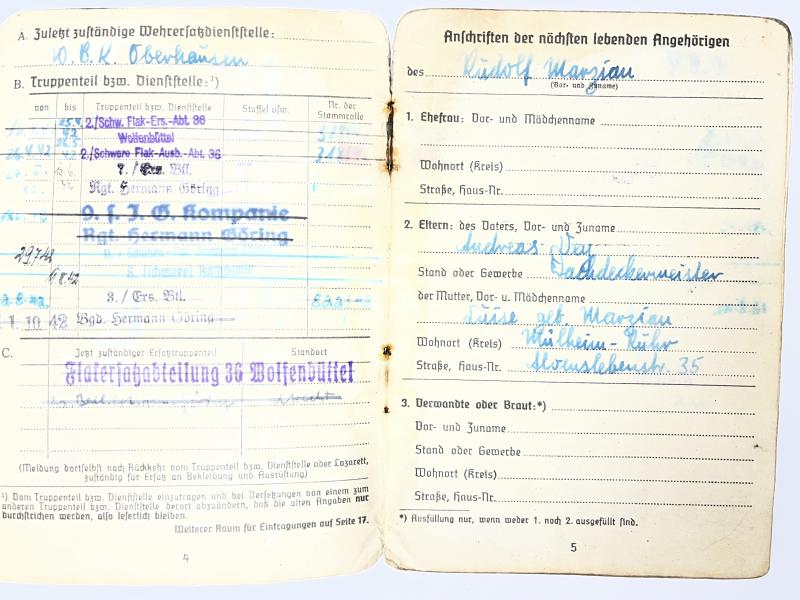 A. Zuletzt zuständige Wehrersatzdienststelle:
W. B. K. Oberhausen
B. Truppenteil bzw. Dienststelle:¹)
von bis Truppenteil bzw. Dienststelle Staffel usw. Nr. der Stammrolle
25.4.42 2./Schw. Flak-Ers.-Abt. 36
Wolfenbüttel
26.4.42 2./Schwere Flak-Ausb.-Abt. 36
Btl.
Rgt. Hermann Göring
9. s. I. G. Kompanie
Rgt. Hermann Göring
29.7.42
3./Ers. Btl.
1.10.42 Bgd. Hermann Göring
C. Jetzt zuständiger Ersatztruppenteil Standort
Flakersatzabteilung 36 Wolfenbüttel
(Meldung dortselbst nach Rückkehr vom Truppenteil bzw. Dienststelle oder Lazarett,
zuständig für Ersatz an Bekleidung und Ausrüstung)
¹) Vom Truppenteil bzw. Dienststelle einzutragen und bei Versetzungen von einem zum
anderen Truppenteil bzw. Dienststelle derart abzuändern, daß die alten Angaben nur
durchstrichen werden, also leserlich bleiben.
Weiterer Raum für Eintragungen auf Seite 17.
4
Anschriften der nächsten lebenden Angehörigen
des Rudolf Marzian
(Vor- und Zuname)
1. Ehefrau: Vor- und Mädchenname
Wohnort (Kreis)
Straße, Haus-Nr.
2. Eltern: des Vaters, Vor- und Zuname
Andreas Dey
Stand oder Gewerbe Dachdeckermeister
der Mutter, Vor- u. Mädchenname
Luise geb. Marzian
Wohnort (Kreis) Mülheim-Ruhr
Straße, Haus-Nr. Alvenslebenstr. 35
3. Verwandte oder Braut:*)
Vor- und Zuname
Stand oder Gewerbe
Wohnort (Kreis)
Straße, Haus-Nr.
*) Ausfüllung nur, wenn weder 1. noch 2. ausgefüllt sind.
5